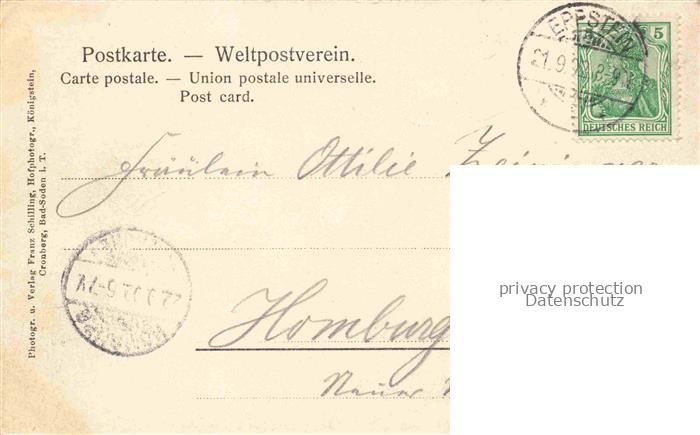 Postkarte. — Weltpostverein.
Carte postale. — Union postale universelle.
Post card.
EPPSTEIN
21.9.
5
DEUTSCHES REICH
Fräulein Ottilie
Homburg
Neuer
Photogr. u. Verlag Franz Schilling, Hofphotogr., Königstein,
Cronberg, Bad-Soden i. T.
privacy protection
Datenschutz